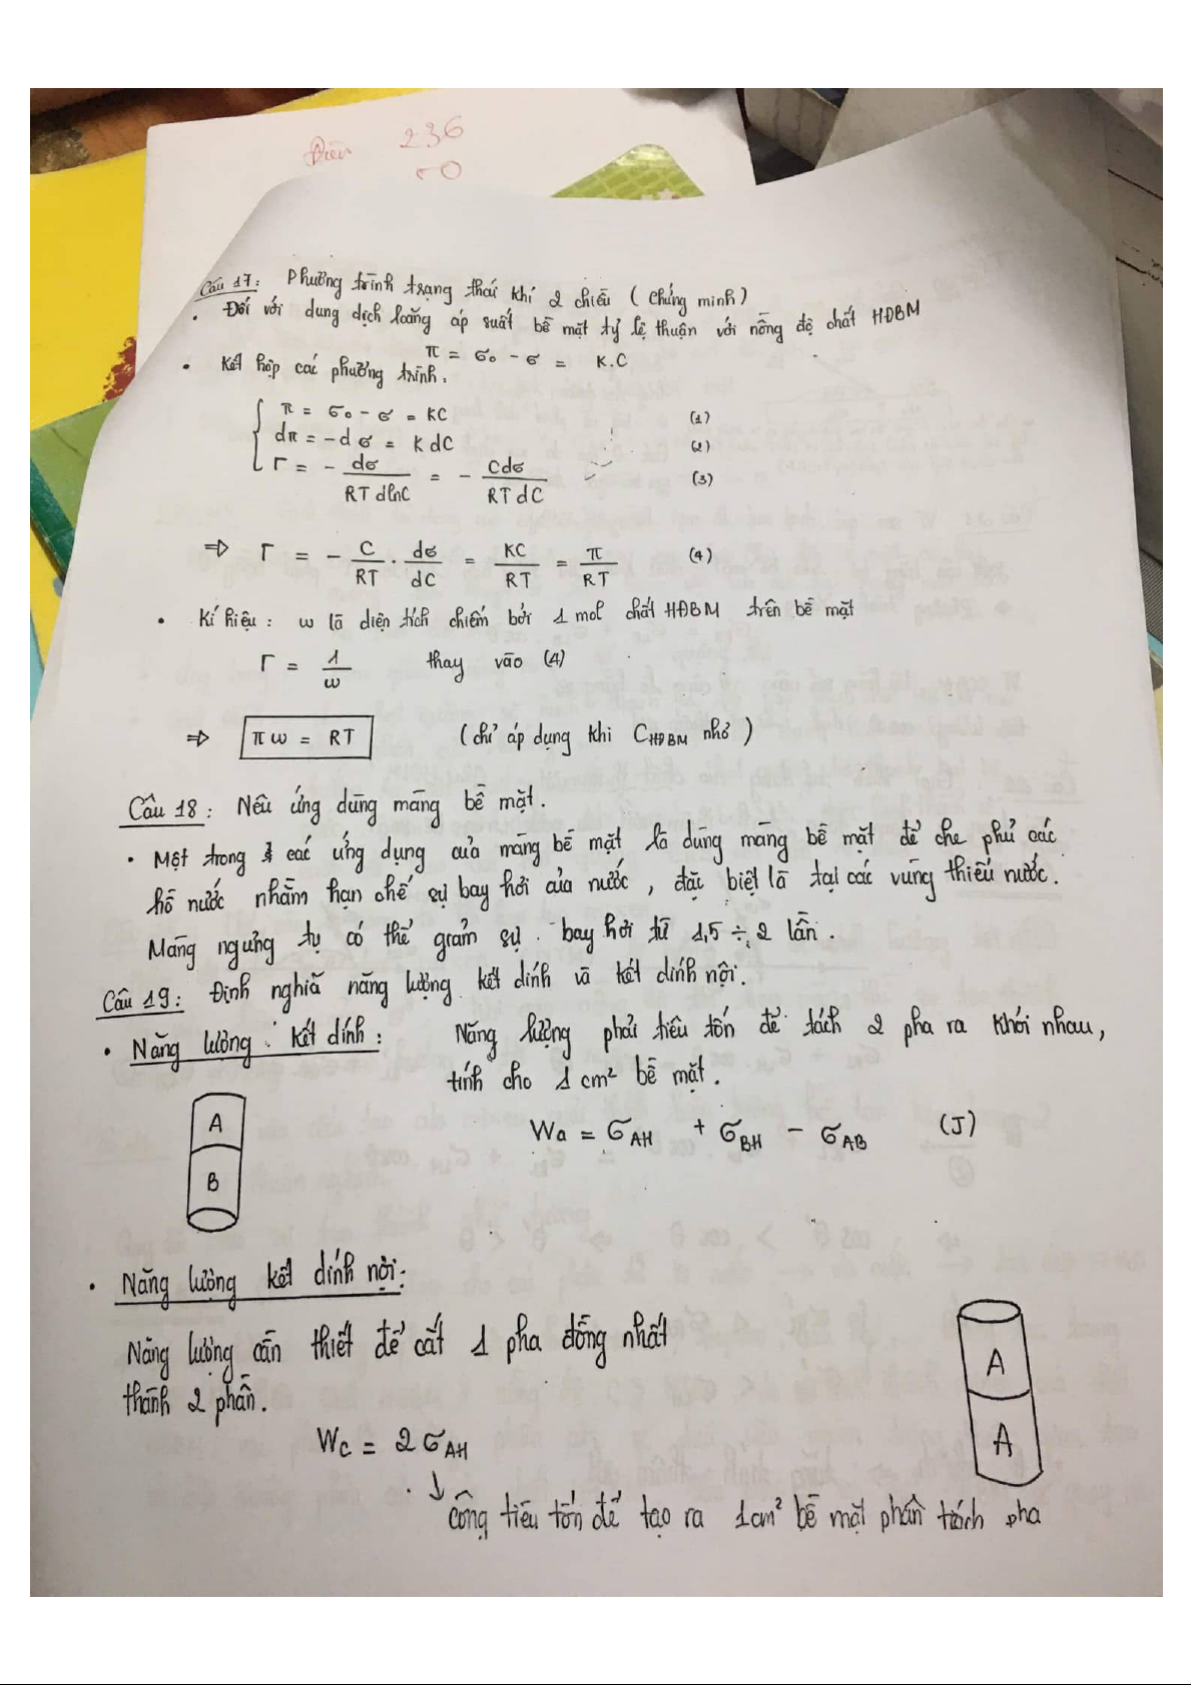 236
Câu 17: Phương trình trạng thái khí 2 chiều ( chứng minh )
• Đối với dung dịch loãng áp suất bề mặt tỷ lệ thuận với nồng độ chất HĐBM
π = σ₀ - σ = K.C
• Kết hợp các phương trình:
π = σ₀ - σ = KC (1)
dπ = -dσ = K dC (2)
Γ = - dσ / RT dlnC = - Cdσ / RT dC (3)
⇒ Γ = - C/RT . dσ/dC = KC/RT = π/RT (4)
• Kí hiệu : ω là diện tích chiếm bởi 1 mol chất HĐBM trên bề mặt
Γ = 1/ω thay vào (4)
⇒ π ω = RT (chỉ áp dụng khi C_HĐBM nhỏ )
Câu 18 : Nêu ứng dùng màng bề mặt .
• Một trong các ứng dụng của màng bề mặt là dùng màng bề mặt để che phủ các
hồ nước nhằm hạn chế sự bay hơi của nước , đặc biệt là tại các vùng thiếu nước .
Màng ngưng tụ có thể giảm sự bay hơi từ 1,5 ÷ 2 lần .
Câu 19 : Định nghĩa năng lượng kết dính và kết dính nội .
• Năng lượng kết dính : Năng lượng phải tiêu tốn để tách 2 pha ra khỏi nhau ,
tính cho 1 cm² bề mặt .
A
B
Wa = σ_AH + σ_BH - σ_AB (J)
• Năng lượng kết dính nội :
Năng lượng cần thiết để cắt 1 pha đồng nhất
thành 2 phần .
A
A
Wc = 2 σ_AH
↓
công tiêu tốn để tạo ra 1cm² bề mặt phân tách pha